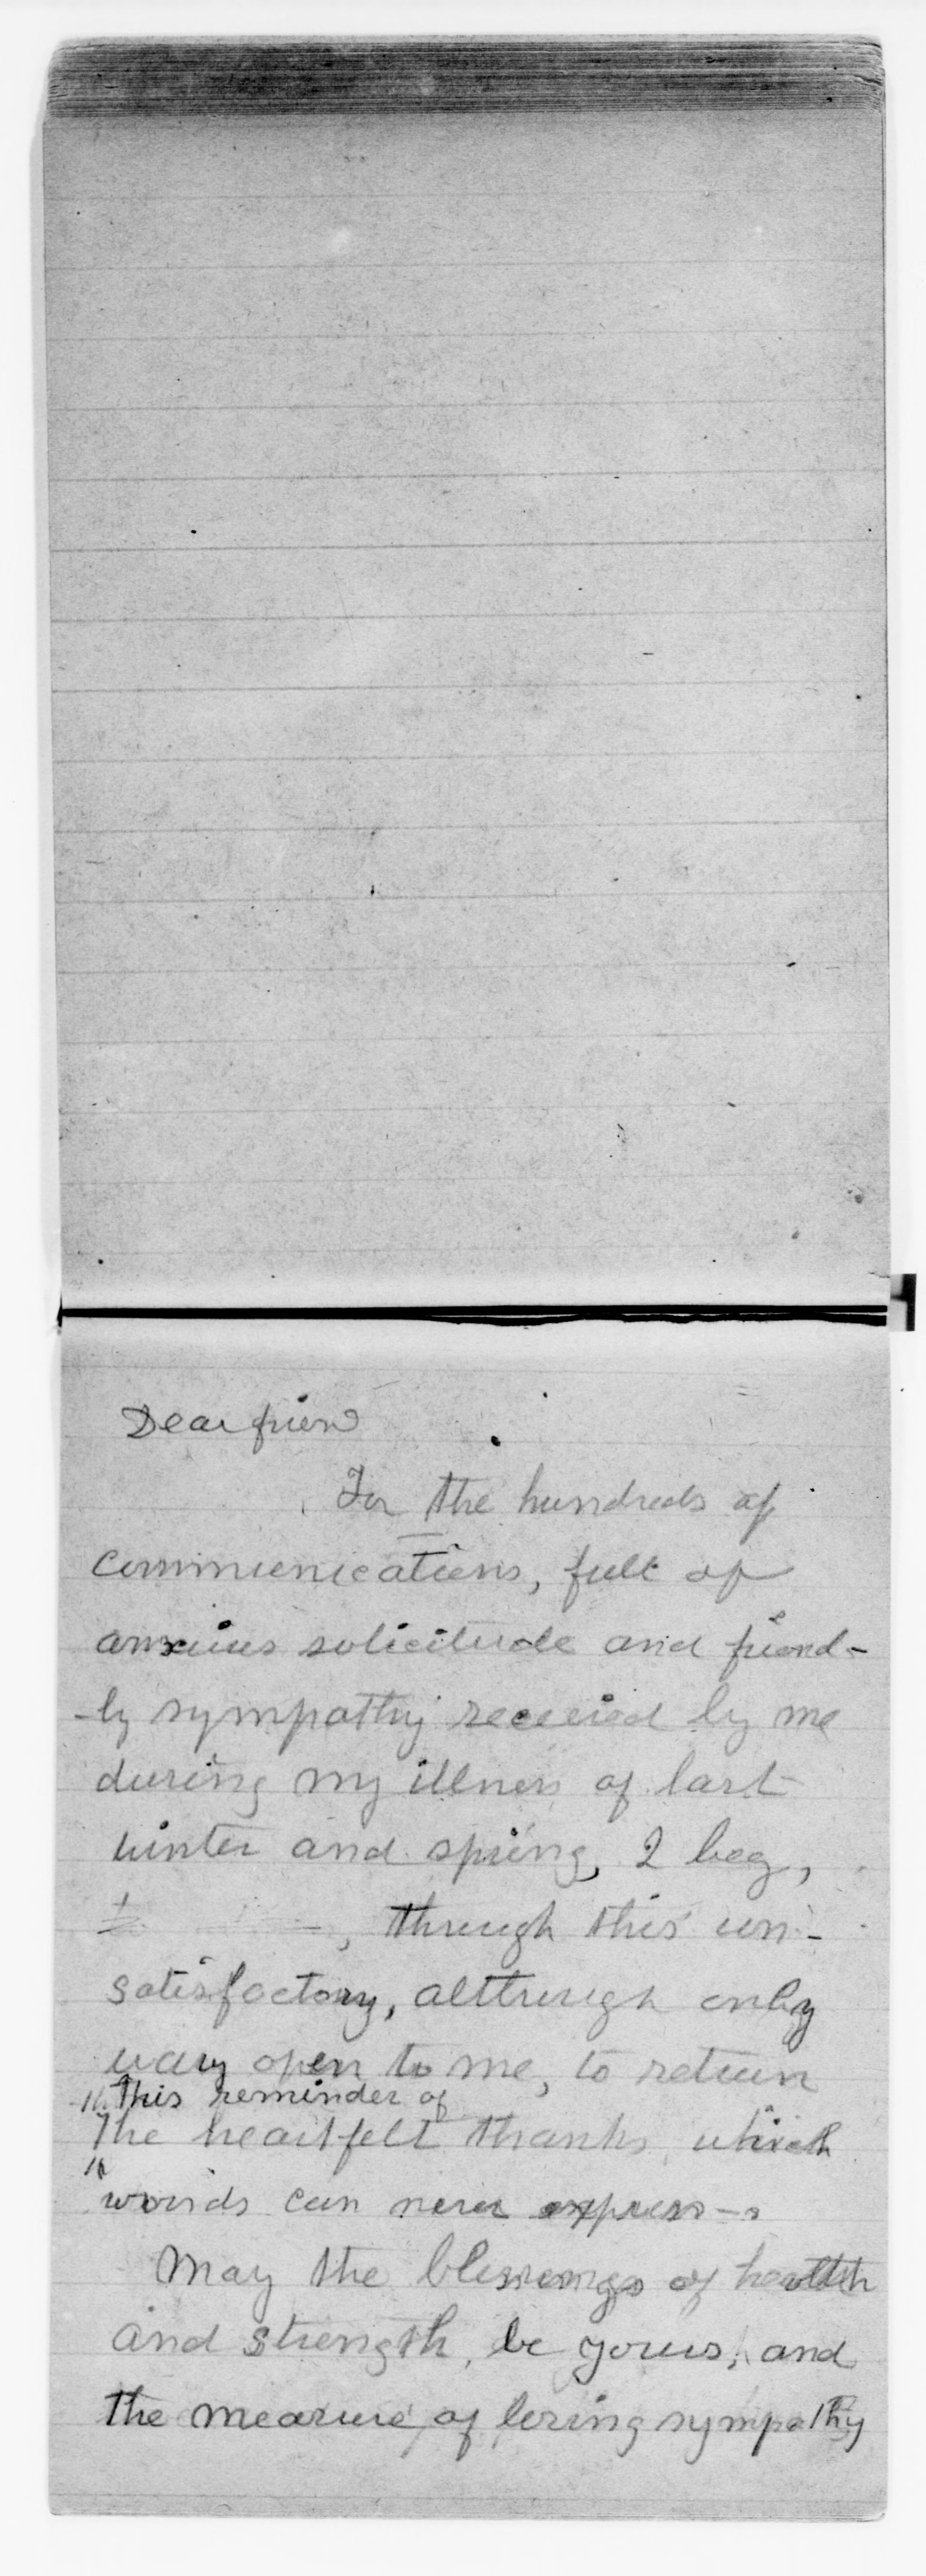 Dear friend
For the hundreds of
communications, full of
anxious solicitude and friend-
-ly sympathy received by me
during my illness of last
winter and spring, I beg,
, through this un-
satisfactory, although only
way open to me, to return
this reminder of
the heartfelt thanks which
words can never express -
May the blessings of health
and strength, be yours, and
the measure, of loving sympathy